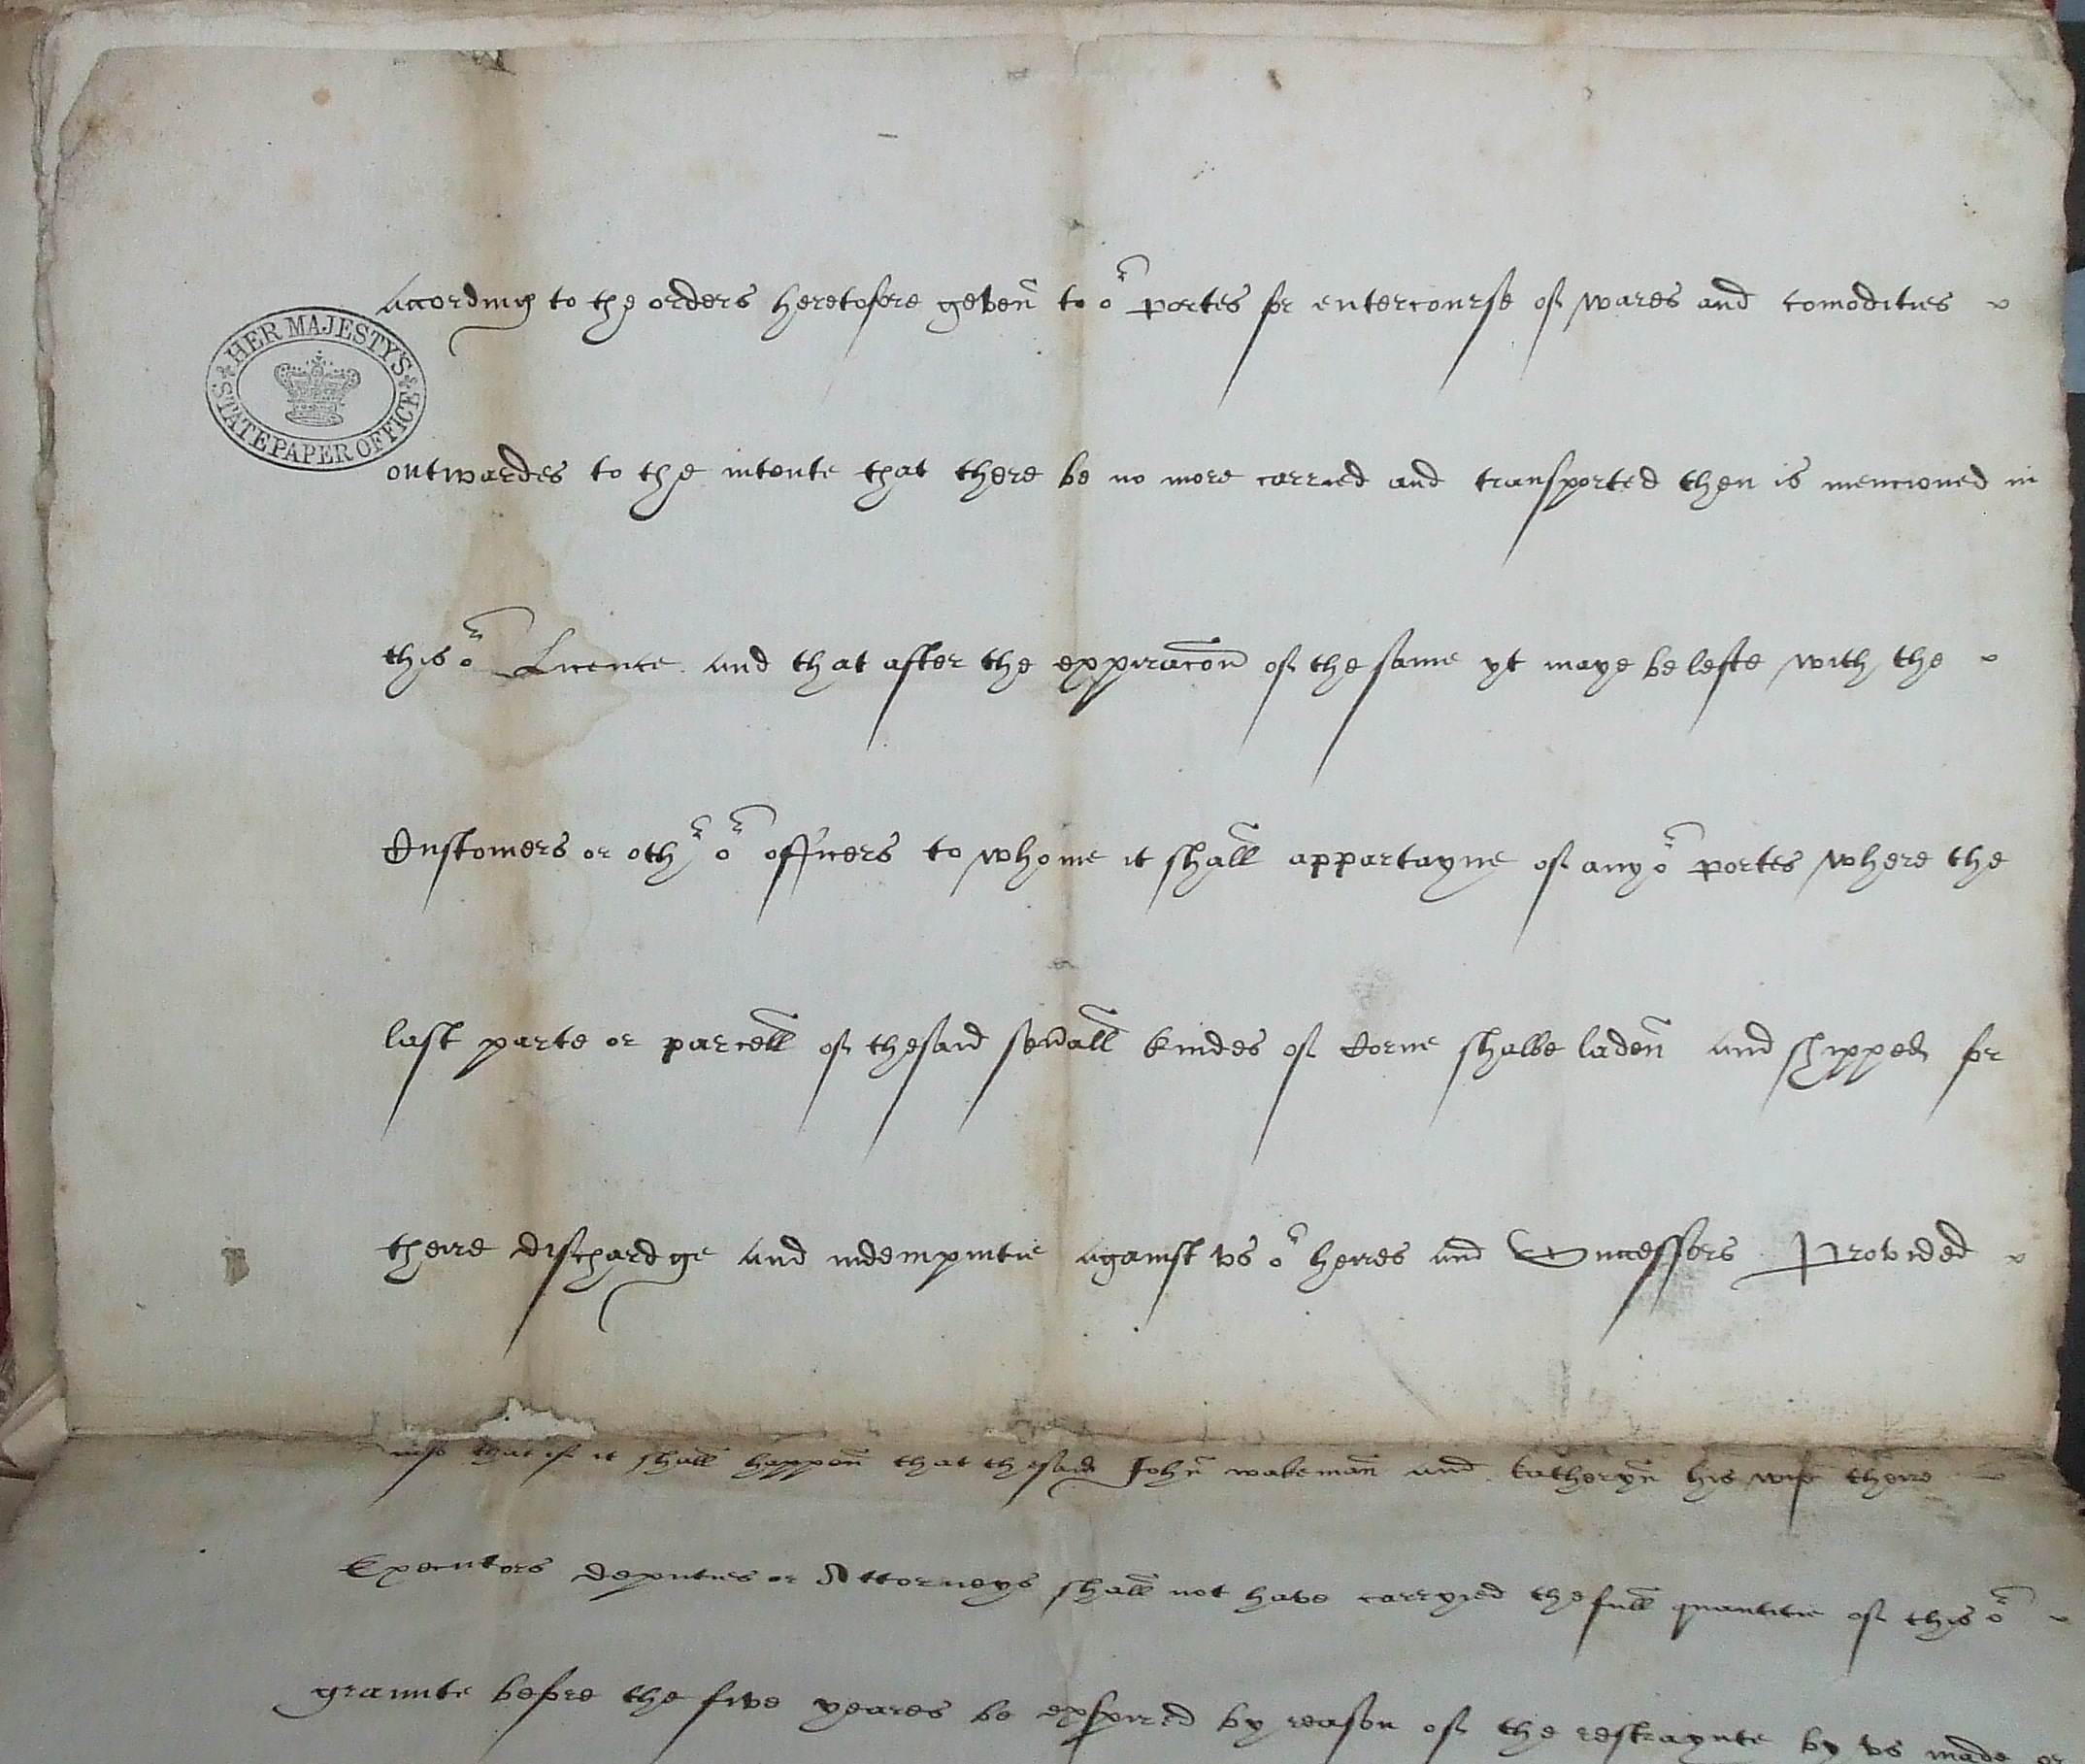 HER MAJESTY'S STATE PAPER OFFICE
According to the orders heretofore geven to or portes for entercourse of wares and comodities
outwardes to the intente that there be no more carried and transported then is mencioned in
this or Licence. and that after the expiracon of the same yt maye be lefte with the
Customers or other or officers to whome it shall appartayne of any or portes where the
last parte or parcell of thesaid severall kindes of Corne shalbe laden and shipped for
theire dischardge and indempnitie against vs or heires and Successors. Provided
also that if it shall happen that thesaid John wakeman and Katheryn his wife theire
Executors deputies or Attorneys shall not have carryed the full quantitie of this or
graunte before the five yeares be expired by reason of the restraynte by vs made or